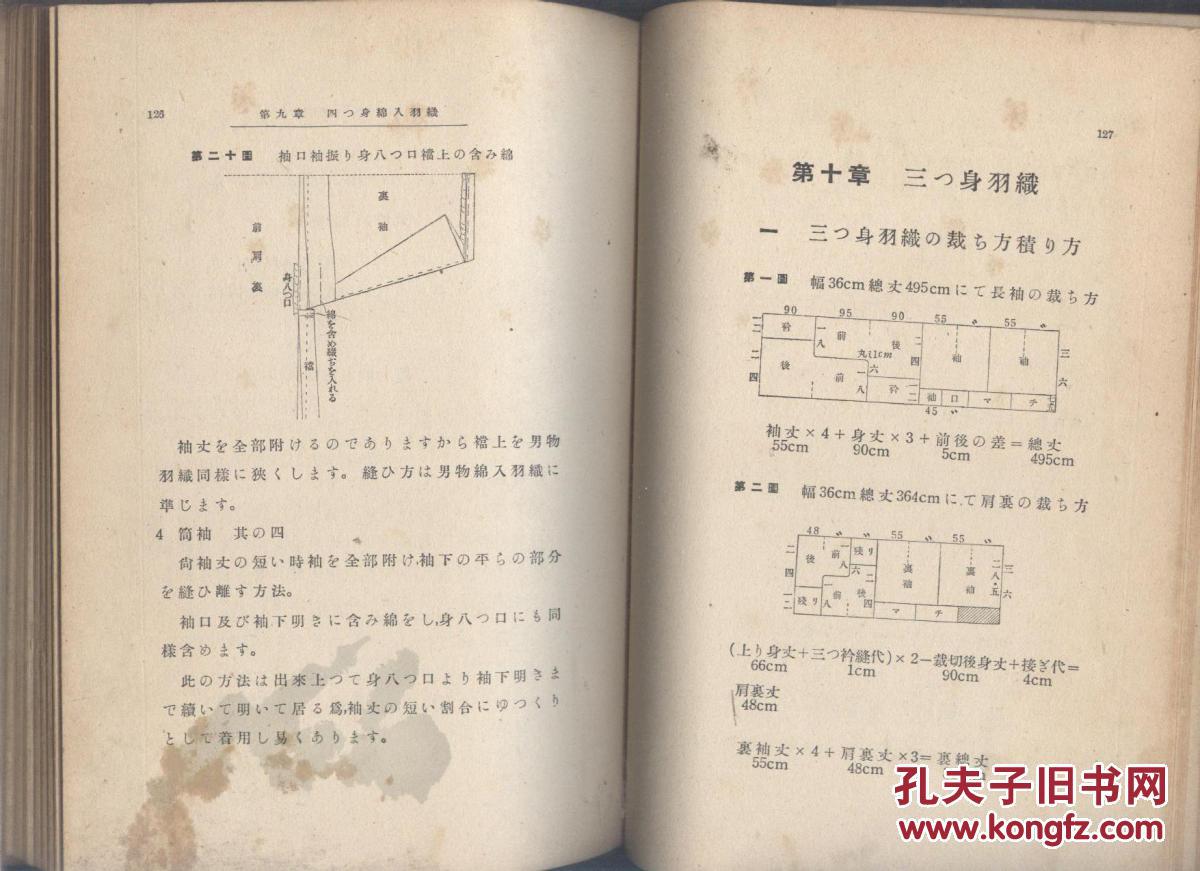 126
第九章 四つ身綿入羽織
第二十圖 袖口袖振り身八つ口襠上の含み綿
前肩裏
裏袖
身八つ口
襠
綿を含め綴ぢを入れる
袖丈を全部附けるのでありますから襠上を男物
羽織同樣に狹くします。縫ひ方は男物綿入羽織に
準じます。
4 筒袖 其の四
尙袖丈の短い時袖を全部附け,袖下の平らの部分
を縫ひ離す方法。
袖口及び袖下明きに含み綿をし,身八つ口にも同
樣含めます。
此の方法は出來上つて身八つ口より袖下明きま
で續いて明いて居る爲,袖丈の短い割合にゆつくり
として着用し易くあります。
127
第十章 三つ身羽織
一 三つ身羽織の裁ち方積り方
第一圖 幅36cm總丈495cmにて長袖の裁ち方
90 95 90 55 〃 55 〃
一二 衿 一八 前 後 二四 袖 袖 三六
丸1cm
二四 後 前 一八 六 衿 一二 袖 口 マ チ 七.五
45 〃
袖丈×4+身丈×3+前後の差=總丈
55cm 90cm 5cm 495cm
第二圖 幅36cm總丈364cmにて肩裏の裁ち方
48 〃 55 〃 55 〃
二四 後 前 一八 殘り 裏袖 裏袖 二八・五 三六
六 二四
一二 殘り 一八 前 後 マ チ
(上り身丈+三つ衿縫代)×2−裁切後身丈+接ぎ代=
66cm 1cm 90cm 4cm
肩裏丈
48cm
裏袖丈×4+肩裏丈×3=裏總丈
55cm 48cm
孔夫子旧书网
www.kongfz.com